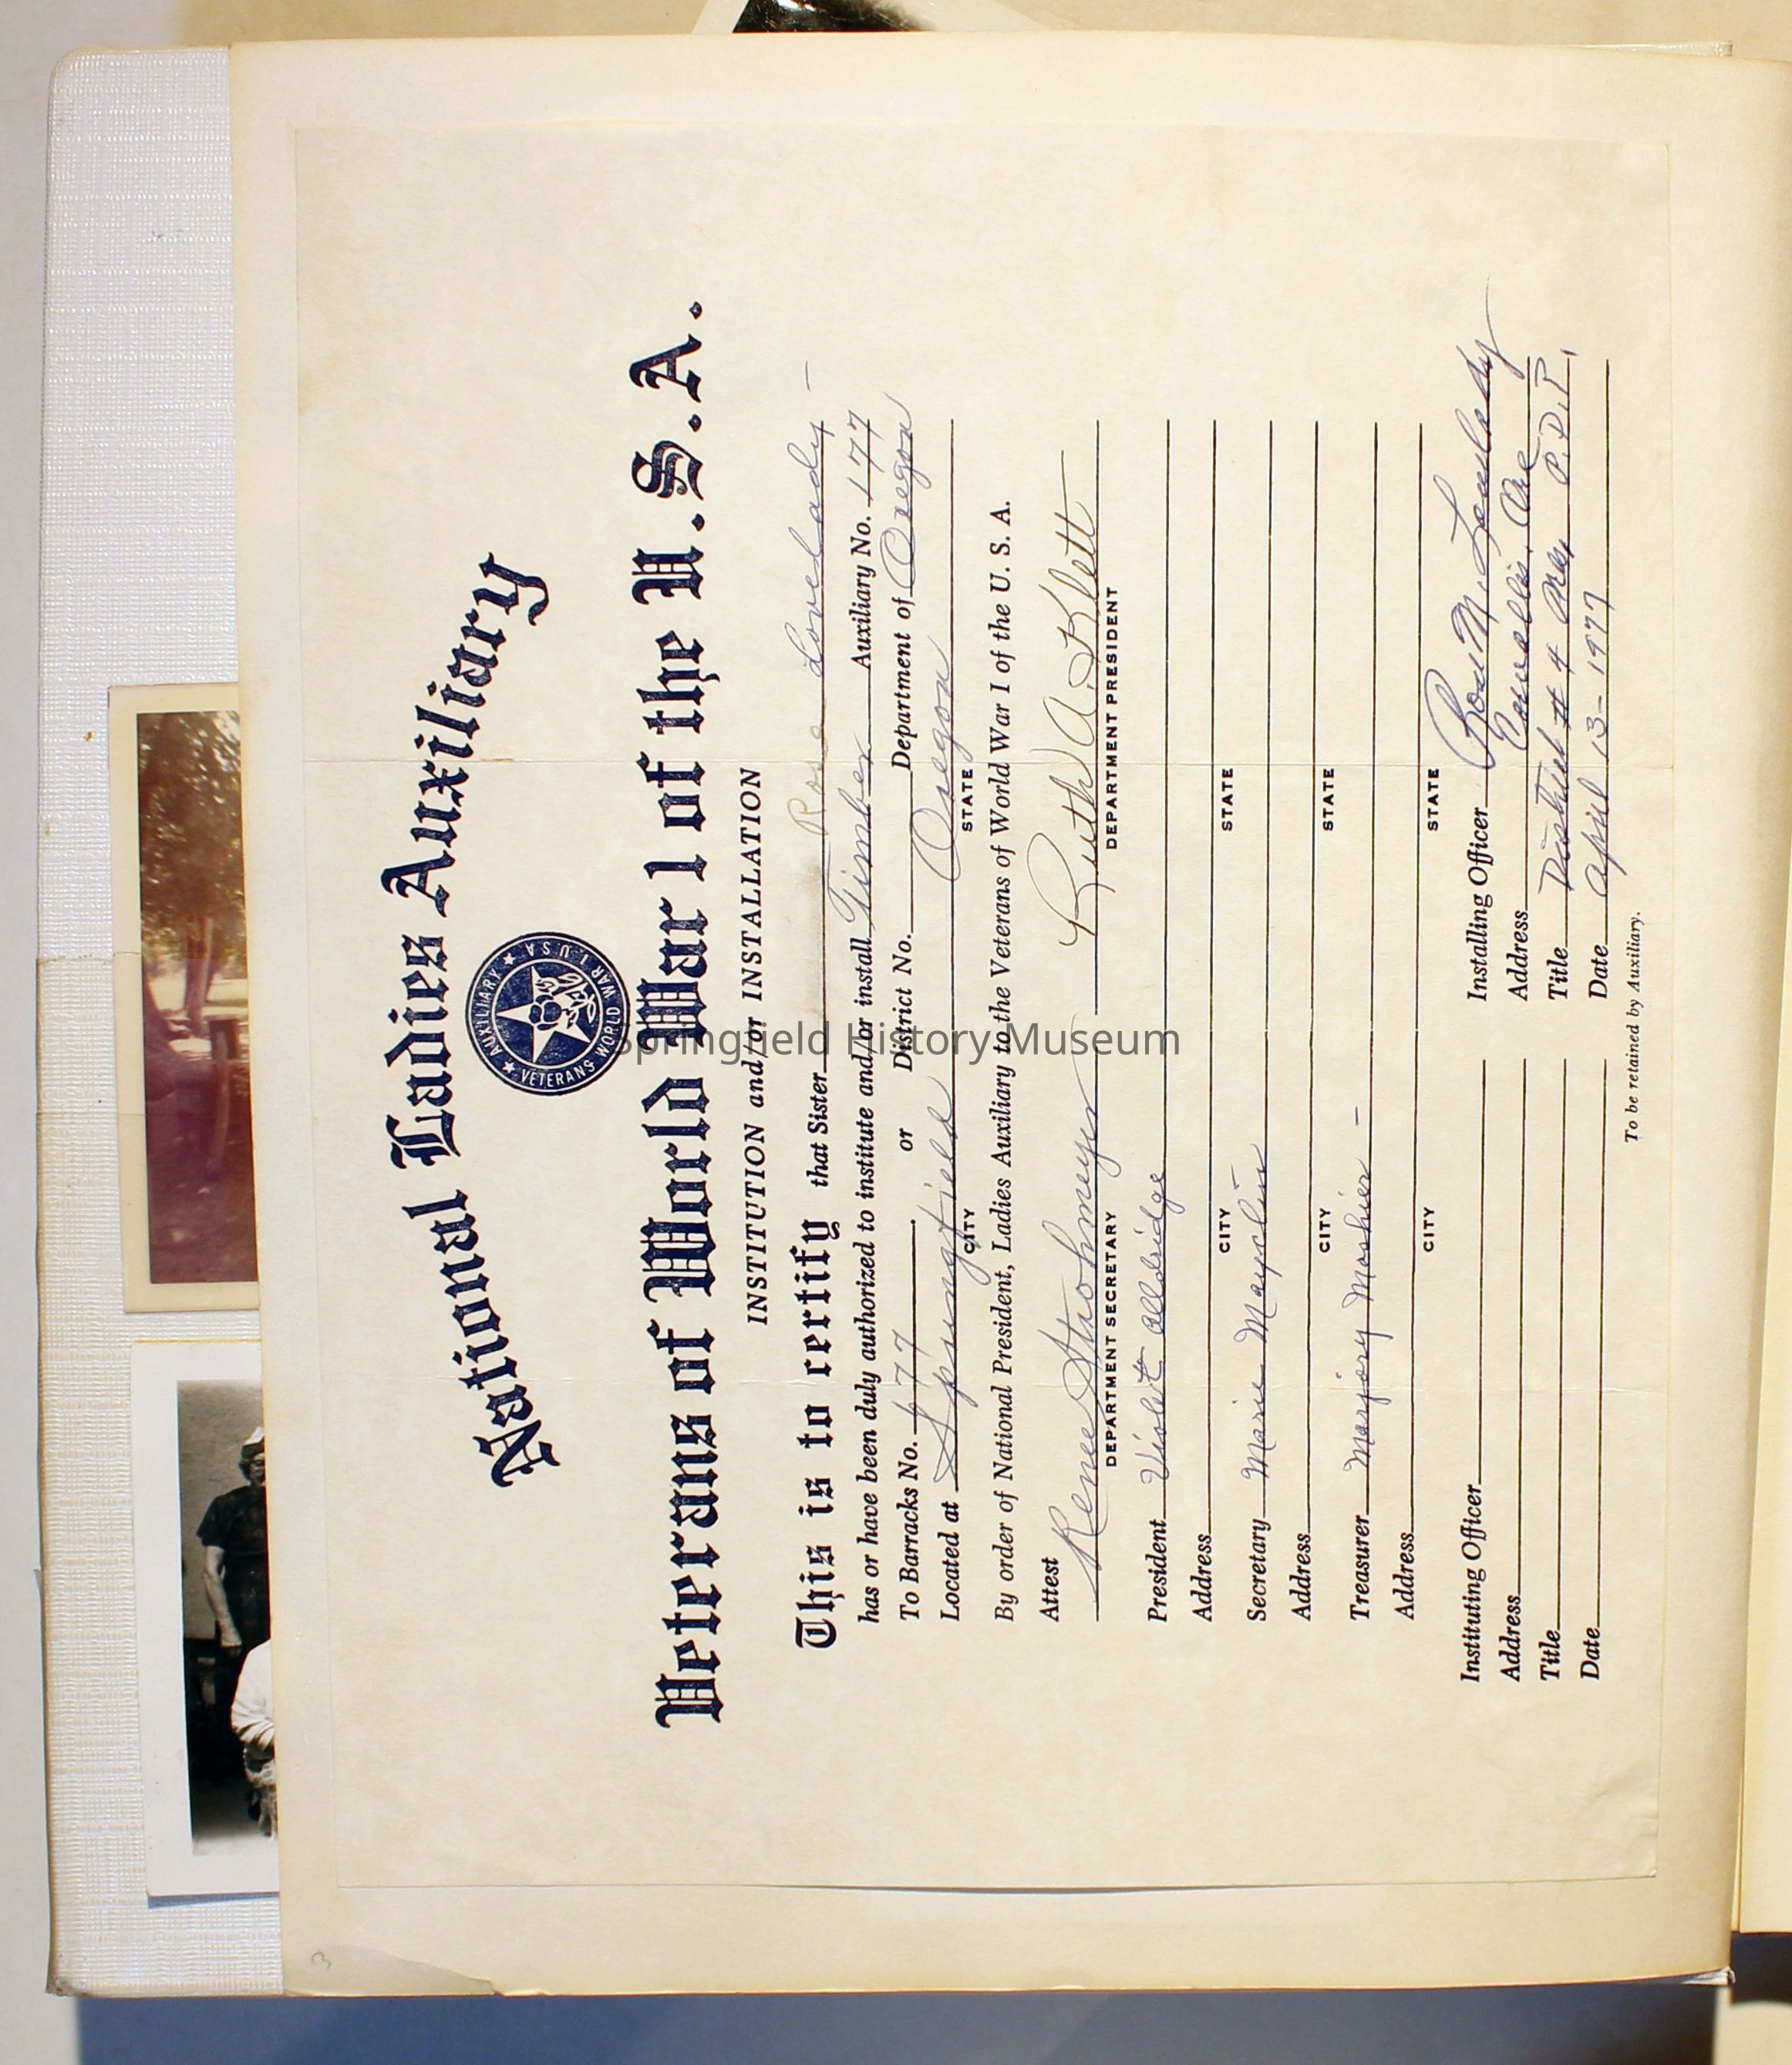 National Ladies Auxiliary
★ AUXILIARY ★ VETERANS WORLD WAR I, U.S.A.
Veterans of World War I of the U.S.A.
INSTITUTION and/or INSTALLATION
This is to certify that Sister Rose Lovelady -
has or have been duly authorized to institute and/or install Timber Auxiliary No. 177
To Barracks No. 677 or District No. Department of Oregon
Located at Springfield Oregon
CITY STATE
By order of National President, Ladies Auxiliary to the Veterans of World War I of the U. S. A.
Attest Renee Strohmeyer Ruth A. Klett
DEPARTMENT SECRETARY DEPARTMENT PRESIDENT
President Violett Alldridge
Address
CITY STATE
Secretary Marie Mayclin
Address
CITY STATE
Treasurer Marjory Moshier -
Address
CITY STATE
Instituting Officer Installing Officer Rose M. Lovelady
Address Address Corvallis, Ore
Title Title District # 4 P.D.P.
Date Date April 13 - 1977
To be retained by Auxiliary.
3
Springfield History Museum